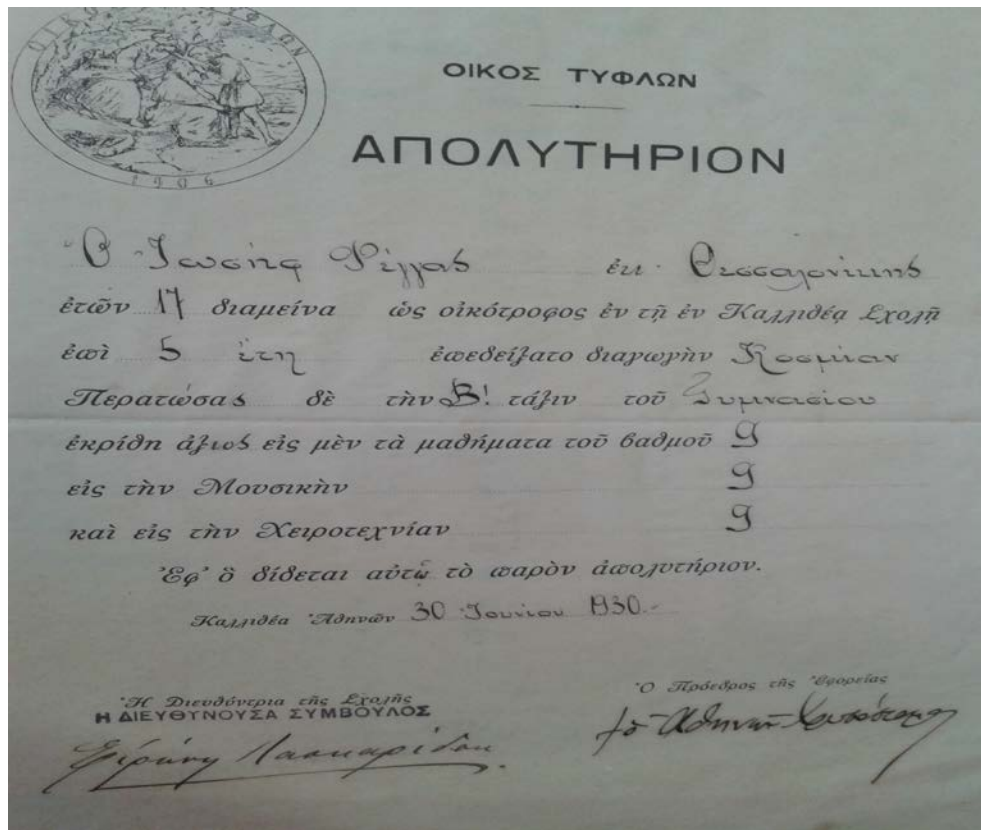 ΟΙΚΟΣ ΤΥΦΛΩΝ
1906
ΟΙΚΟΣ ΤΥΦΛΩΝ
ΑΠΟΛΥΤΗΡΙΟΝ
Ὁ Ἰωσὴφ Φέγγας ἐκ Θεσσαλονίκης
ἐτῶν 17 διαμείνα ὡς οἰκότροφος ἐν τῇ ἐν Καλλιθέᾳ Σχολῇ
ἐπὶ 5 ἔτη ἐπεδείξατο διαγωγὴν Κοσμίαν
Περατώσας δὲ τὴν Β! τάξιν τοῦ Γυμνασίου
ἐκρίθη ἄξιος εἰς μὲν τὰ μαθήματα τοῦ βαθμοῦ 9
εἰς τὴν Μουσικὴν 9
καὶ εἰς τὴν Χειροτεχνίαν 9
Ἐφ' ὃ δίδεται αὐτῷ τὸ παρὸν ἀπολυτήριον.
Καλλιθέα Ἀθηνῶν 30 Ἰουνίου 1930.-
Ἡ Διευθύντρια τῆς Σχολῆς
Η ΔΙΕΥΘΥΝΟΥΣΑ ΣΥΜΒΟΥΛΟΣ
Εἰρήνη Λασκαρίδου
Ὁ Πρόεδρος τῆς Ἐφορείας
† ὁ Ἀθηνῶν Χρυσόστομος